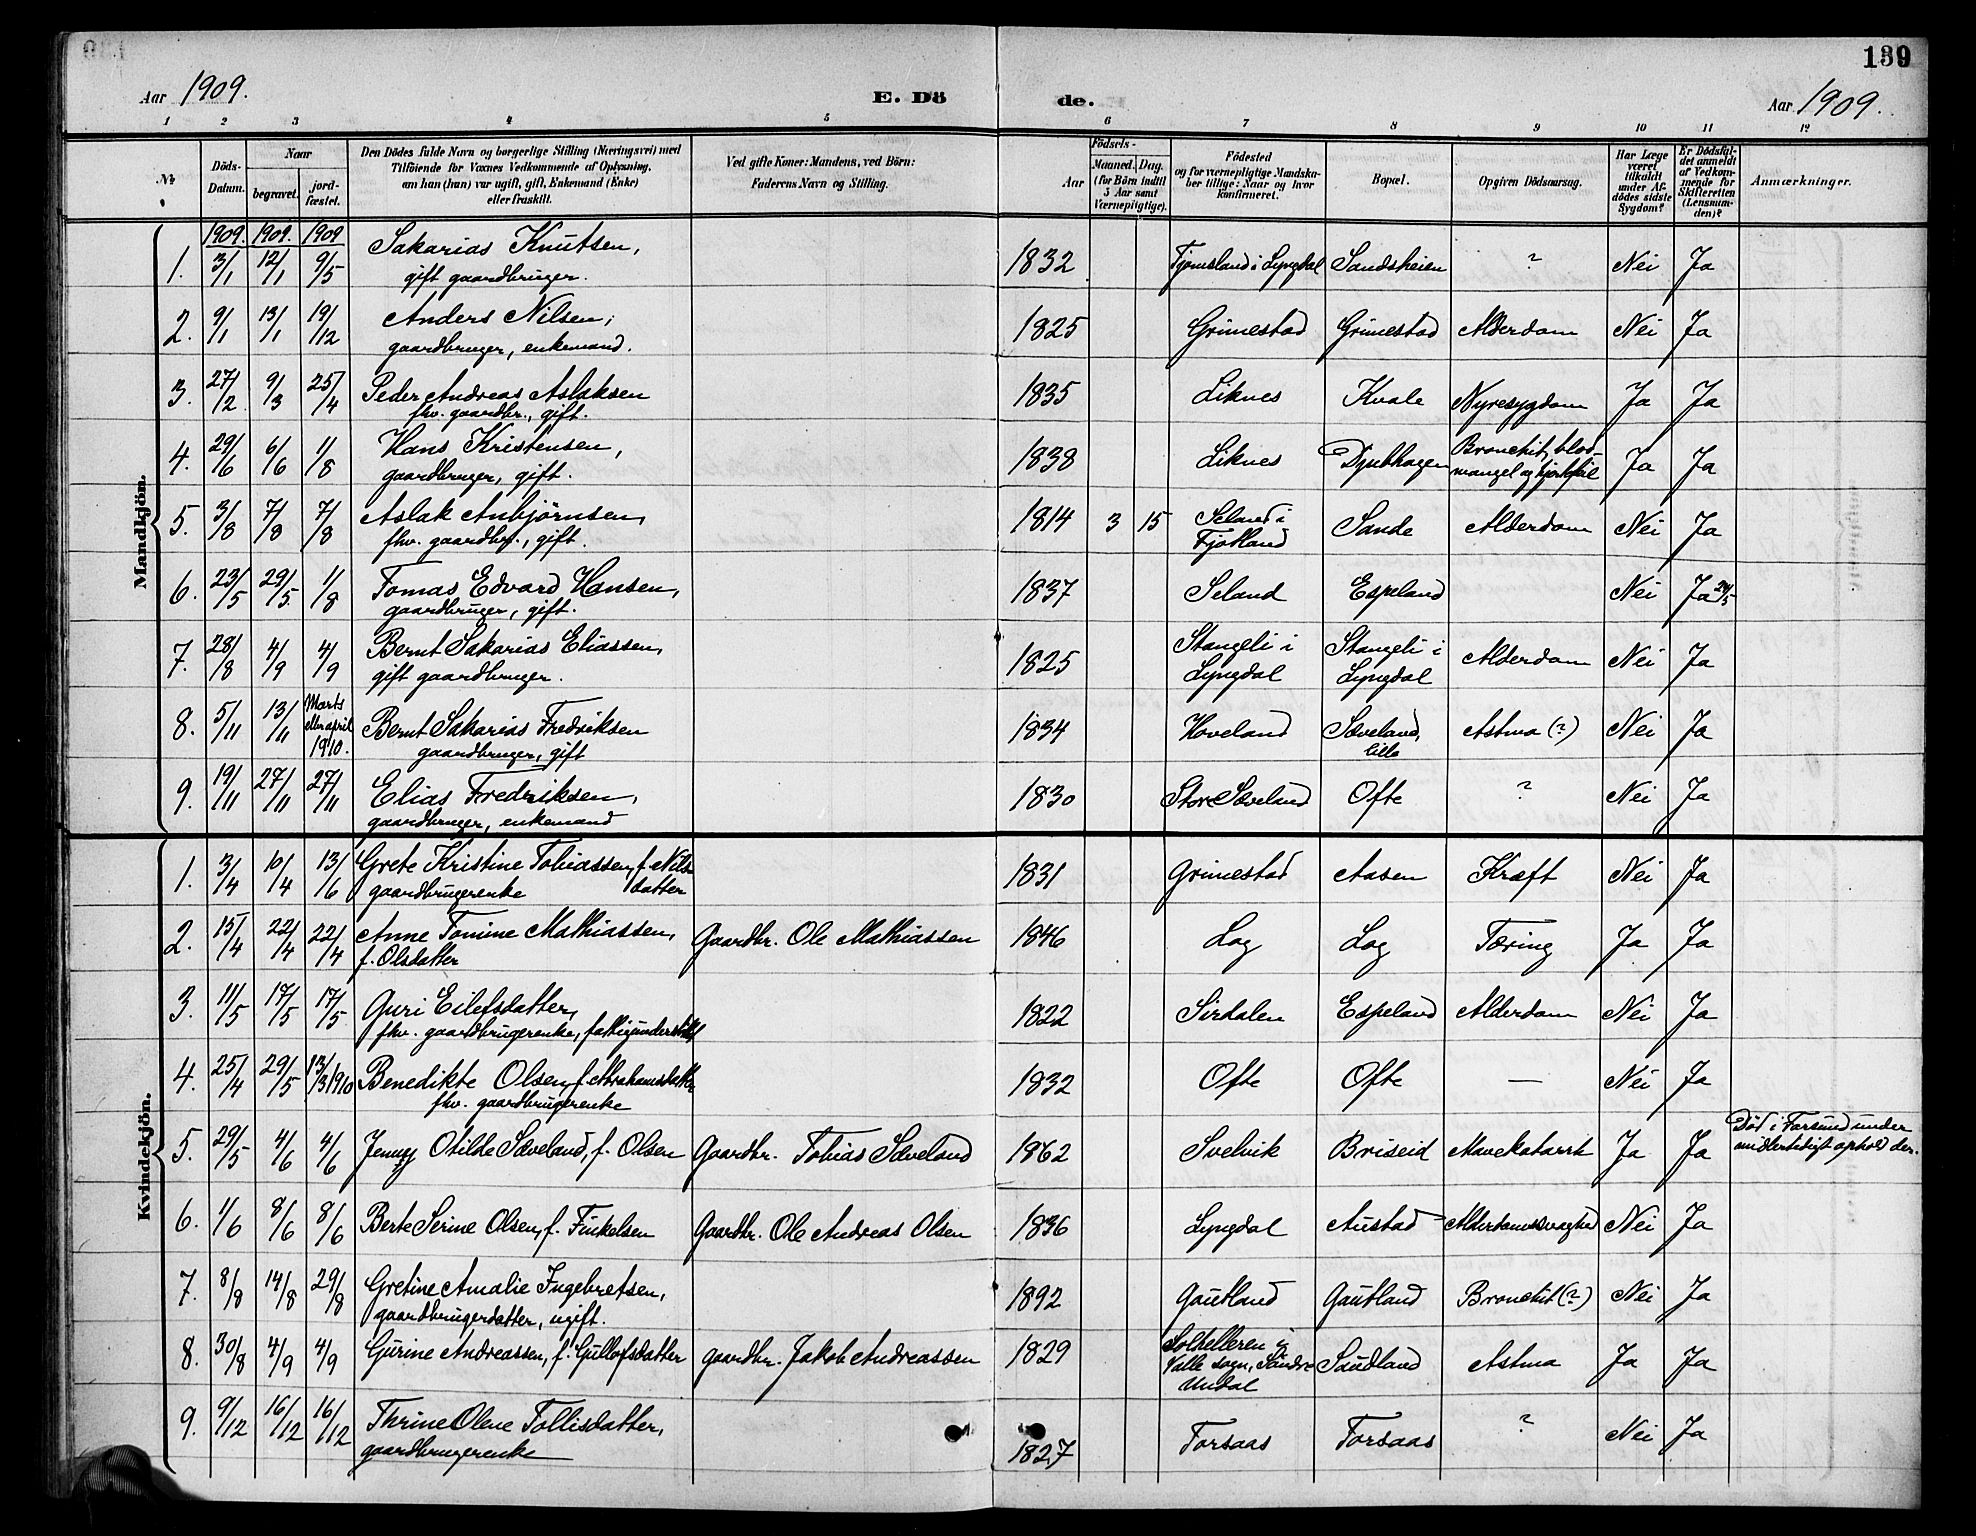 139
Aar 1909.
E. Döde.
Aar 1909.
1 2 3 4 5 6 7 8 9 10 11 12
Nr.
Döds-Datum.
Naar
begravet.
jord-fæstet.
Den Dödes fulde Navn og borgerlige Stilling (Næringsvei) med
Tilföiende for Voxnes Vedkommende af Oplysning,
om han (hun) var ugift, gift, Enkemand (Enke)
eller fraskilt.
Ved gifte Koner: Mandens, ved Börn:
Faderens Navn og Stilling.
Födsels-
Aar
Maaned. Dag.
(for Börn indtil
5 Aar samt
Værnepligtige).
Födested
og for værnepligtige Mandska-
ber tillige: Naar og hvor
konfirmeret.
Bopæl.
Opgiven Dödsaarsag.
Har Læge
været
tilkaldt
under Af-
dödes sidste
Sygdom?
Er Dödsfal-
det anmeldt
af Vedkom-
mende for
Skifteretten
(Lensman-
den)?
Anmærkninger.
Mandkjön.
1909. 1909. 1909
1. 3/1 12/1 9/5 Sakarias Knutsen, 1832 Tjomsland i Lyngdal Sandsheien ? Nei Ja
gift gaardbruger.
2. 9/1 13/1 19/12 Anders Nilsen, 1825 Grimestad Grimestad Alderdom Nei Ja
gaardbruger, enkemand.
3. 27/2 9/3 25/4 Peder Andreas Aslaksen 1835 Liknes Kvale Nyresygdom Ja Ja
fhv. gaardbr., gift.
4. 29/6 6/6 1/8 Hans Kristensen, 1838 Liknes Djubhagen Bronchit, blod-
gaardbruger, gift. mangel og hjertefeil Ja Ja
5. 3/8 7/8 7/8 Aslak Anbjörnsen, 1814 3 15 Seland i Sande Alderdom Nei Ja
fhv. gaardbr., gift. Fjotland
6. 23/5 29/5 1/8 Tomas Edvard Hansen, 1837 Seland Espeland Nei Ja 29/5
gaardbruger, gift.
7. 28/8 4/9 4/9 Bernt Sakarias Eliassen, 1825 Stangeli i Stangeli i Alderdom Nei Ja
gift gaardbruger. Lyngdal Lyngdal
8. 5/11 13/11 Marts eller april 1910. Bernt Sakarias Fredriksen 1834 Hoveland Sæveland, Astma (?) Nei Ja
gaardbruger, gift lille
9. 19/11 27/11 27/11 Elias Fredriksen, 1830 Store Sæveland Ofte ? Nei Ja
gaardbruger, enkemand
Kvindekjön.
1. 3/4 10/4 13/6 Grete Kristine Tobiassen, f. Nils- 1831 Grimestad Aasen Kræft Nei Ja
gaardbrugerenke datter
2. 15/4 22/4 22/4 Anne Tomine Mathiassen, Gaardbr. Ole Mathiassen 1846 Log Log Tæring Ja Ja
f. Olsdatter
3. 11/5 17/5 17/5 Guri Eilefsdatter, 1822 Sirdalen Espeland Alderdom Nei Ja
fhv. gaardbrugerenke, fattigunderstöttet
4. 25/4 29/5 13/3 1910 Benedikte Olsen, f. Abrahamsdatter 1832 Ofte Ofte — Nei Ja
fhv. gaardbrugerenke
5. 29/5 4/6 4/6 Jenny Otilde Sæveland, f. Olsen Gaardbr. Tobias Sæveland 1862 Svelvik Briseid Mavekatarrh Ja Ja Död i Farsund under
midlertidigt ophold der.
6. 1/6 8/6 8/6 Berte Serine Olsen, f. Tinkelsen Gaardbr. Ole Andreas Olsen 1836 Lyngdal Austad Alderdomssvaghed Nei Ja
7. 8/8 14/8 29/8 Gretine Amalie Ingebretsen, 1892 Gautland Gautland Bronchit (?) Nei Ja
gaardbrugerdatter, ugift.
8. 30/8 4/9 4/9 Gurine Andreassen, f. Gullofsdatter gaardbr. Jakob Andreassen 1829 Solhelleren i
Valle sogn, Söndre
Undal Saudland Astma Ja Ja
9. 9/12 16/12 16/12 Thrine Olene Tollisdatter, 1827 Torsaas Torsaas ? Nei Ja
gaardbrugerenke